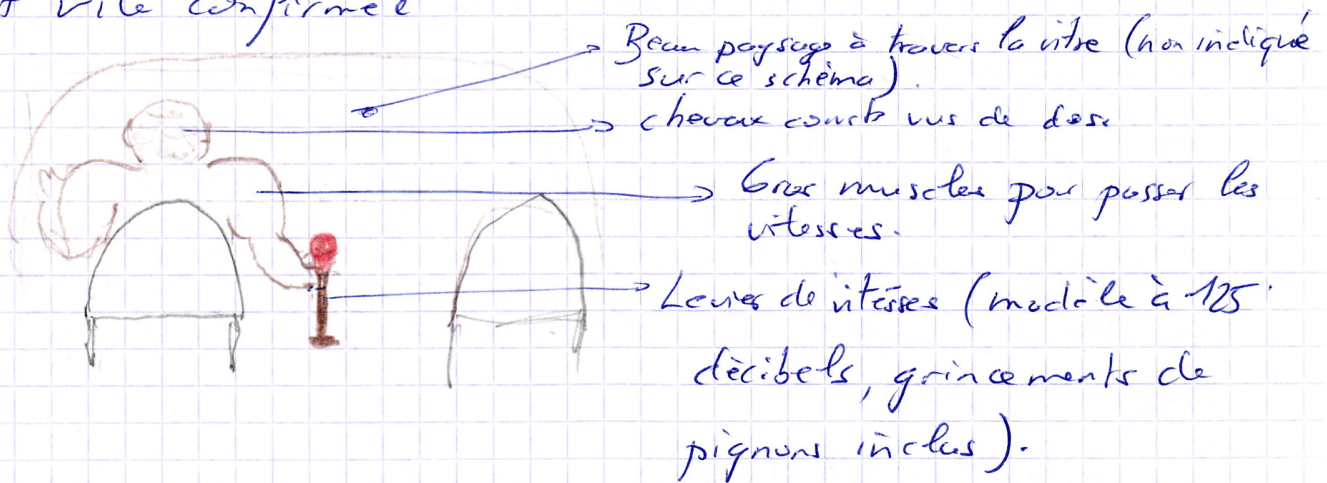 vite confirmée
Beau paysage à travers la vitre (non indiqué
sur ce schéma).
cheveux courts vus de dos.
Gros muscles pour passer les
vitesses.
Levier de vitesses (modèle à 125
décibels, grincements de
pignons inclus).